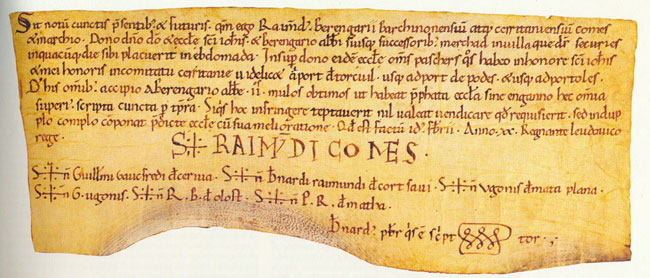 Sit notũ cunctis p̃sentib; & futuris. qm̃ ego Raimd' berengarii barchinonensium atq; cerritaniensium comes
& marchio. Dono dño dõ & eccłe sc̃i ioh̃is & berengario abbi suisq; successorib; merchad in uilla que dr̃ securies
in quacũq; die sibi placuerit in ebdomada. Insup̃ dono eidẽ eccłe om̃s paschers q̃s habeo in honore sc̃i ioh̃is
& mei honoris in comitatu cerritanie uidelicet a port d torcuil. usq; ad port de podes. & usq; ad portoles.
D' his om̃ib; accipio a berengario abbe. ii. mulos obtimos ut habeat p̃phata eccła sine enganno hec omia
superi' scripta cuncta p tp̃ra. Siq̃s hec infringere teptauerit nil ualeat uendicare qd̃ requisierit. sed in dup
plo componat p̃dicte eccłe cũ sua melioratione. Qd̃ est factũ id' febrii. Anno. xx. Regnante leudouico
rege.
S+ RAIMVDI COMES.
S+ñ Guillmi gaucfredi d ceruia. S+ñ bñardi raimundi d cort saui. S+ñ ugonis d mata plana.
S+ñ G. ugonis. S+ñ R. B. d olost. S+ñ P. R. d matha.
bñard' pbr̃ q̃ s̃ e sc̃pt tor.;